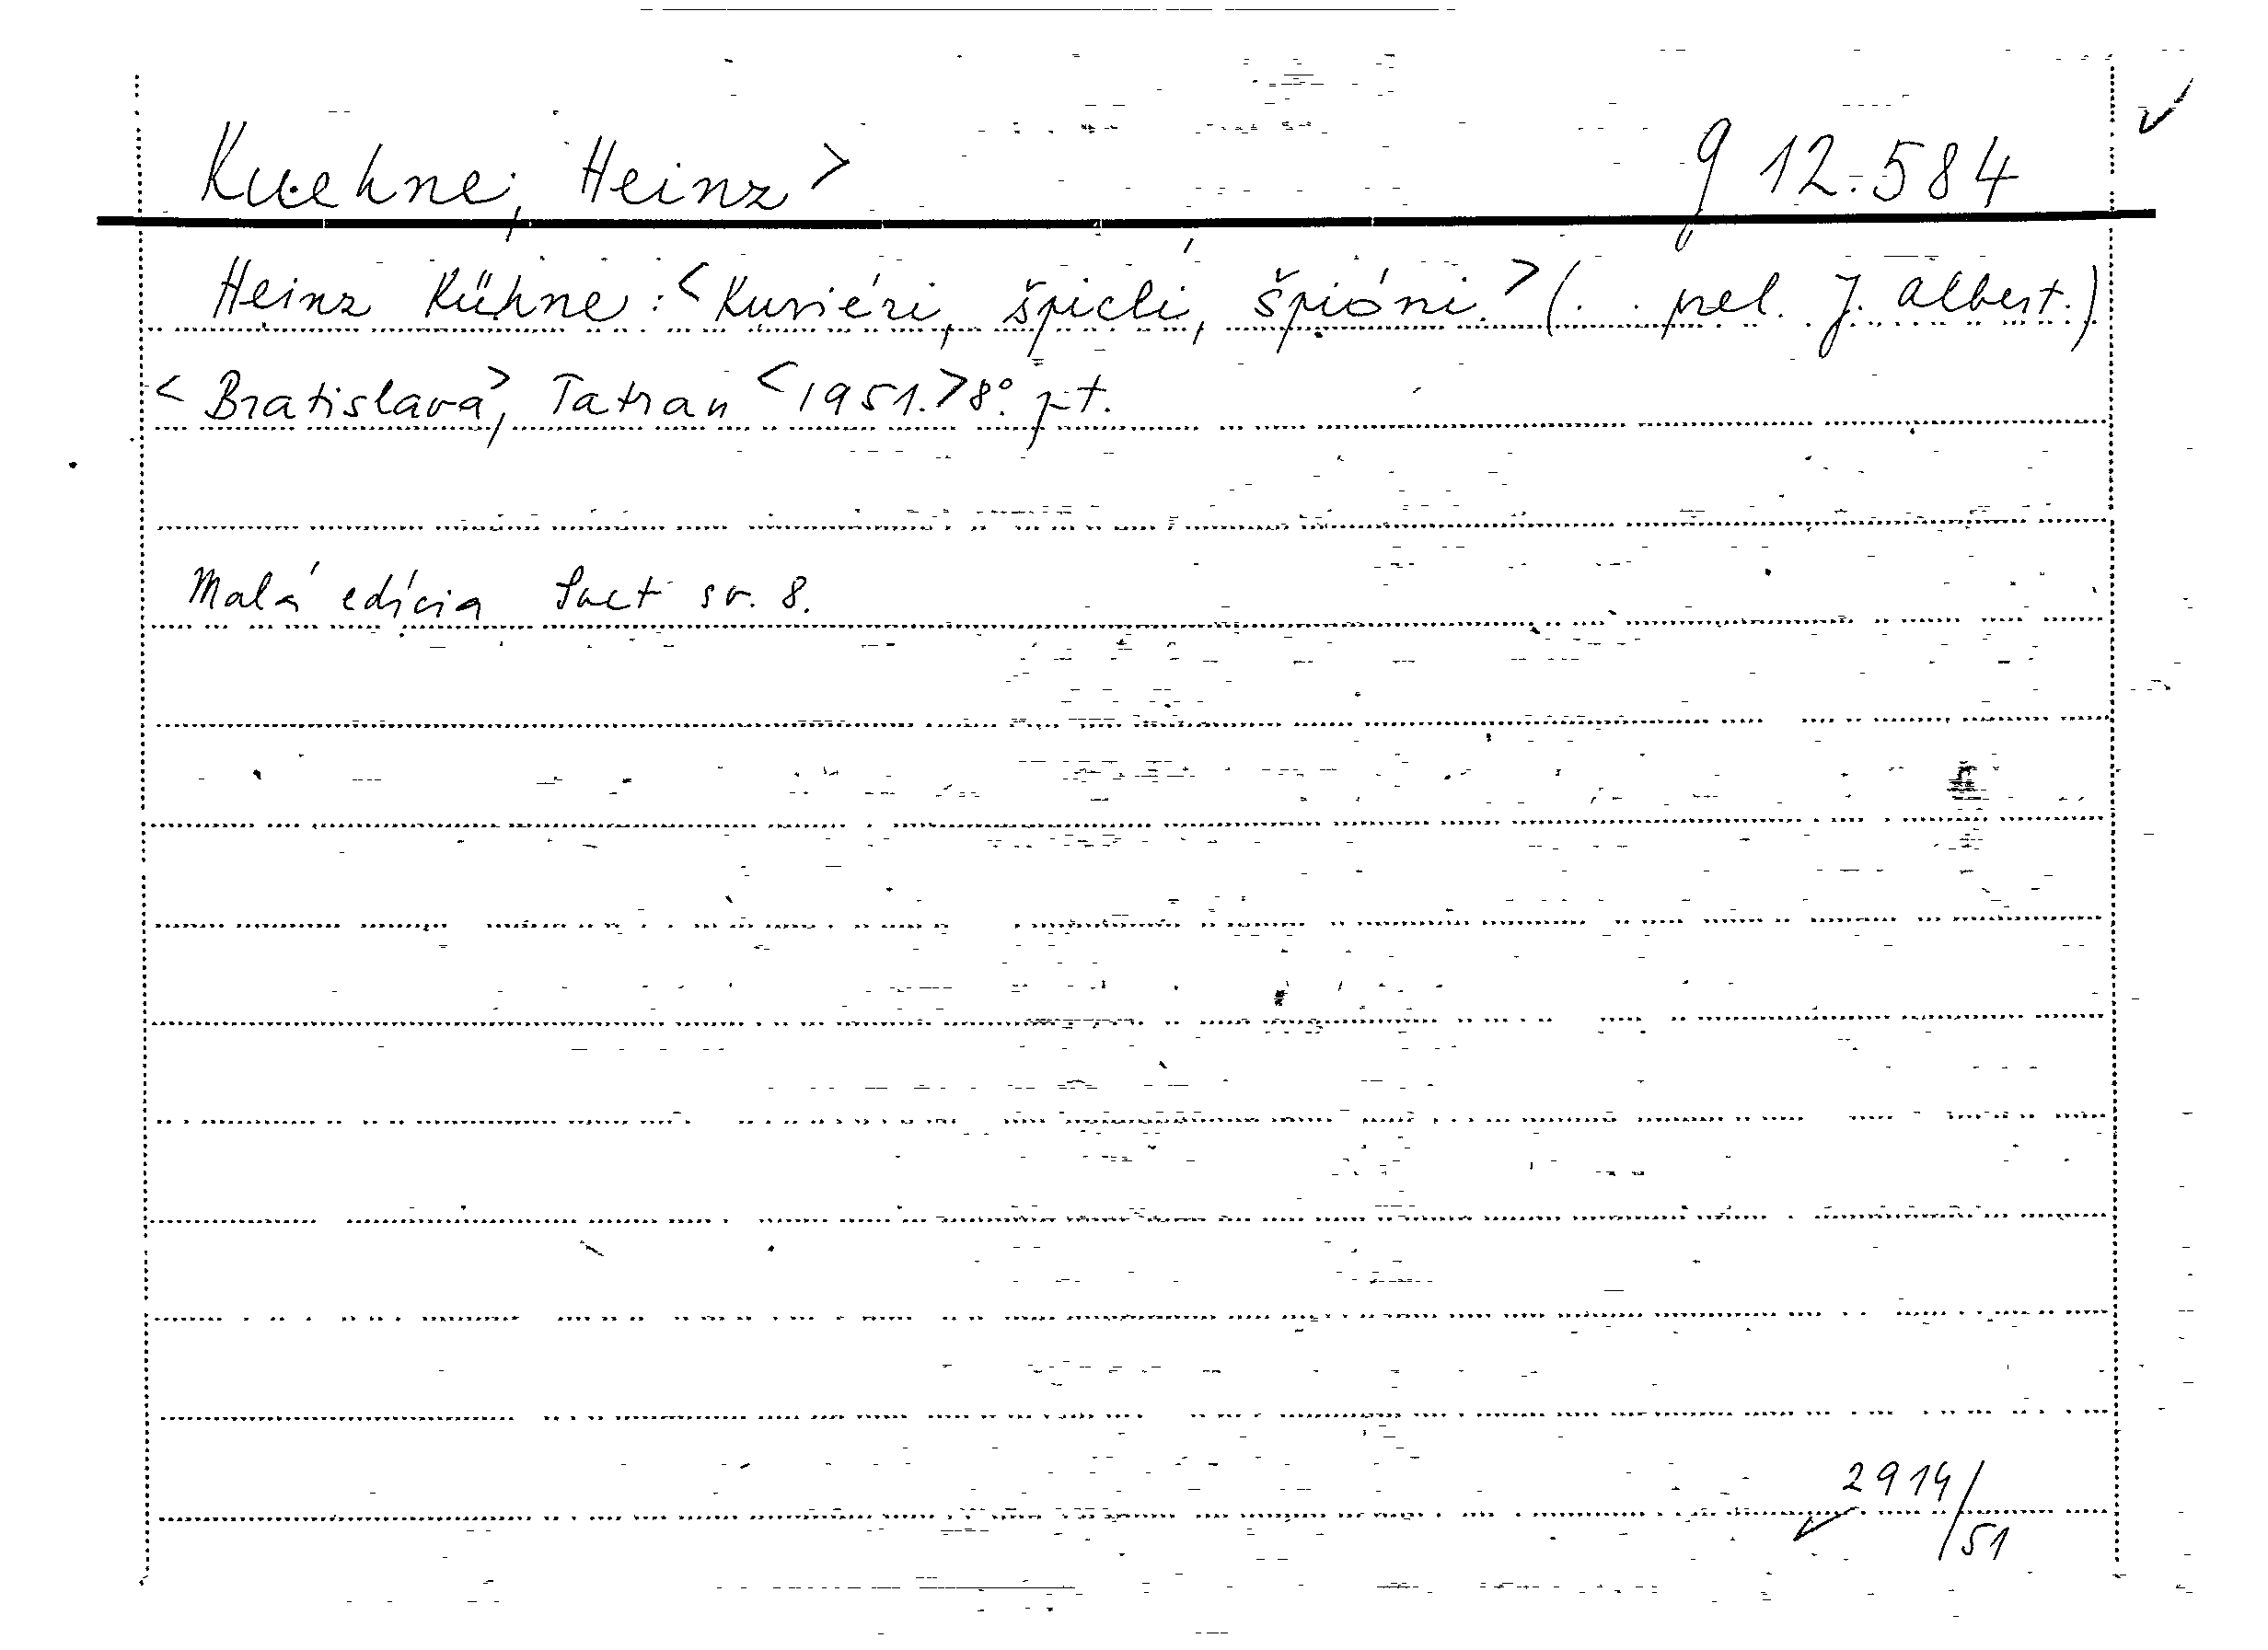 Kuehne, Heinz> g 12.584
Heinz Kühne: <Kuriéri, špicli, špióni.> (. . prel. J. Albert.)
<Bratislava>, Tatran <1951.> 8°. pt.
Malá edícia Svet sv. 8.
2914/51